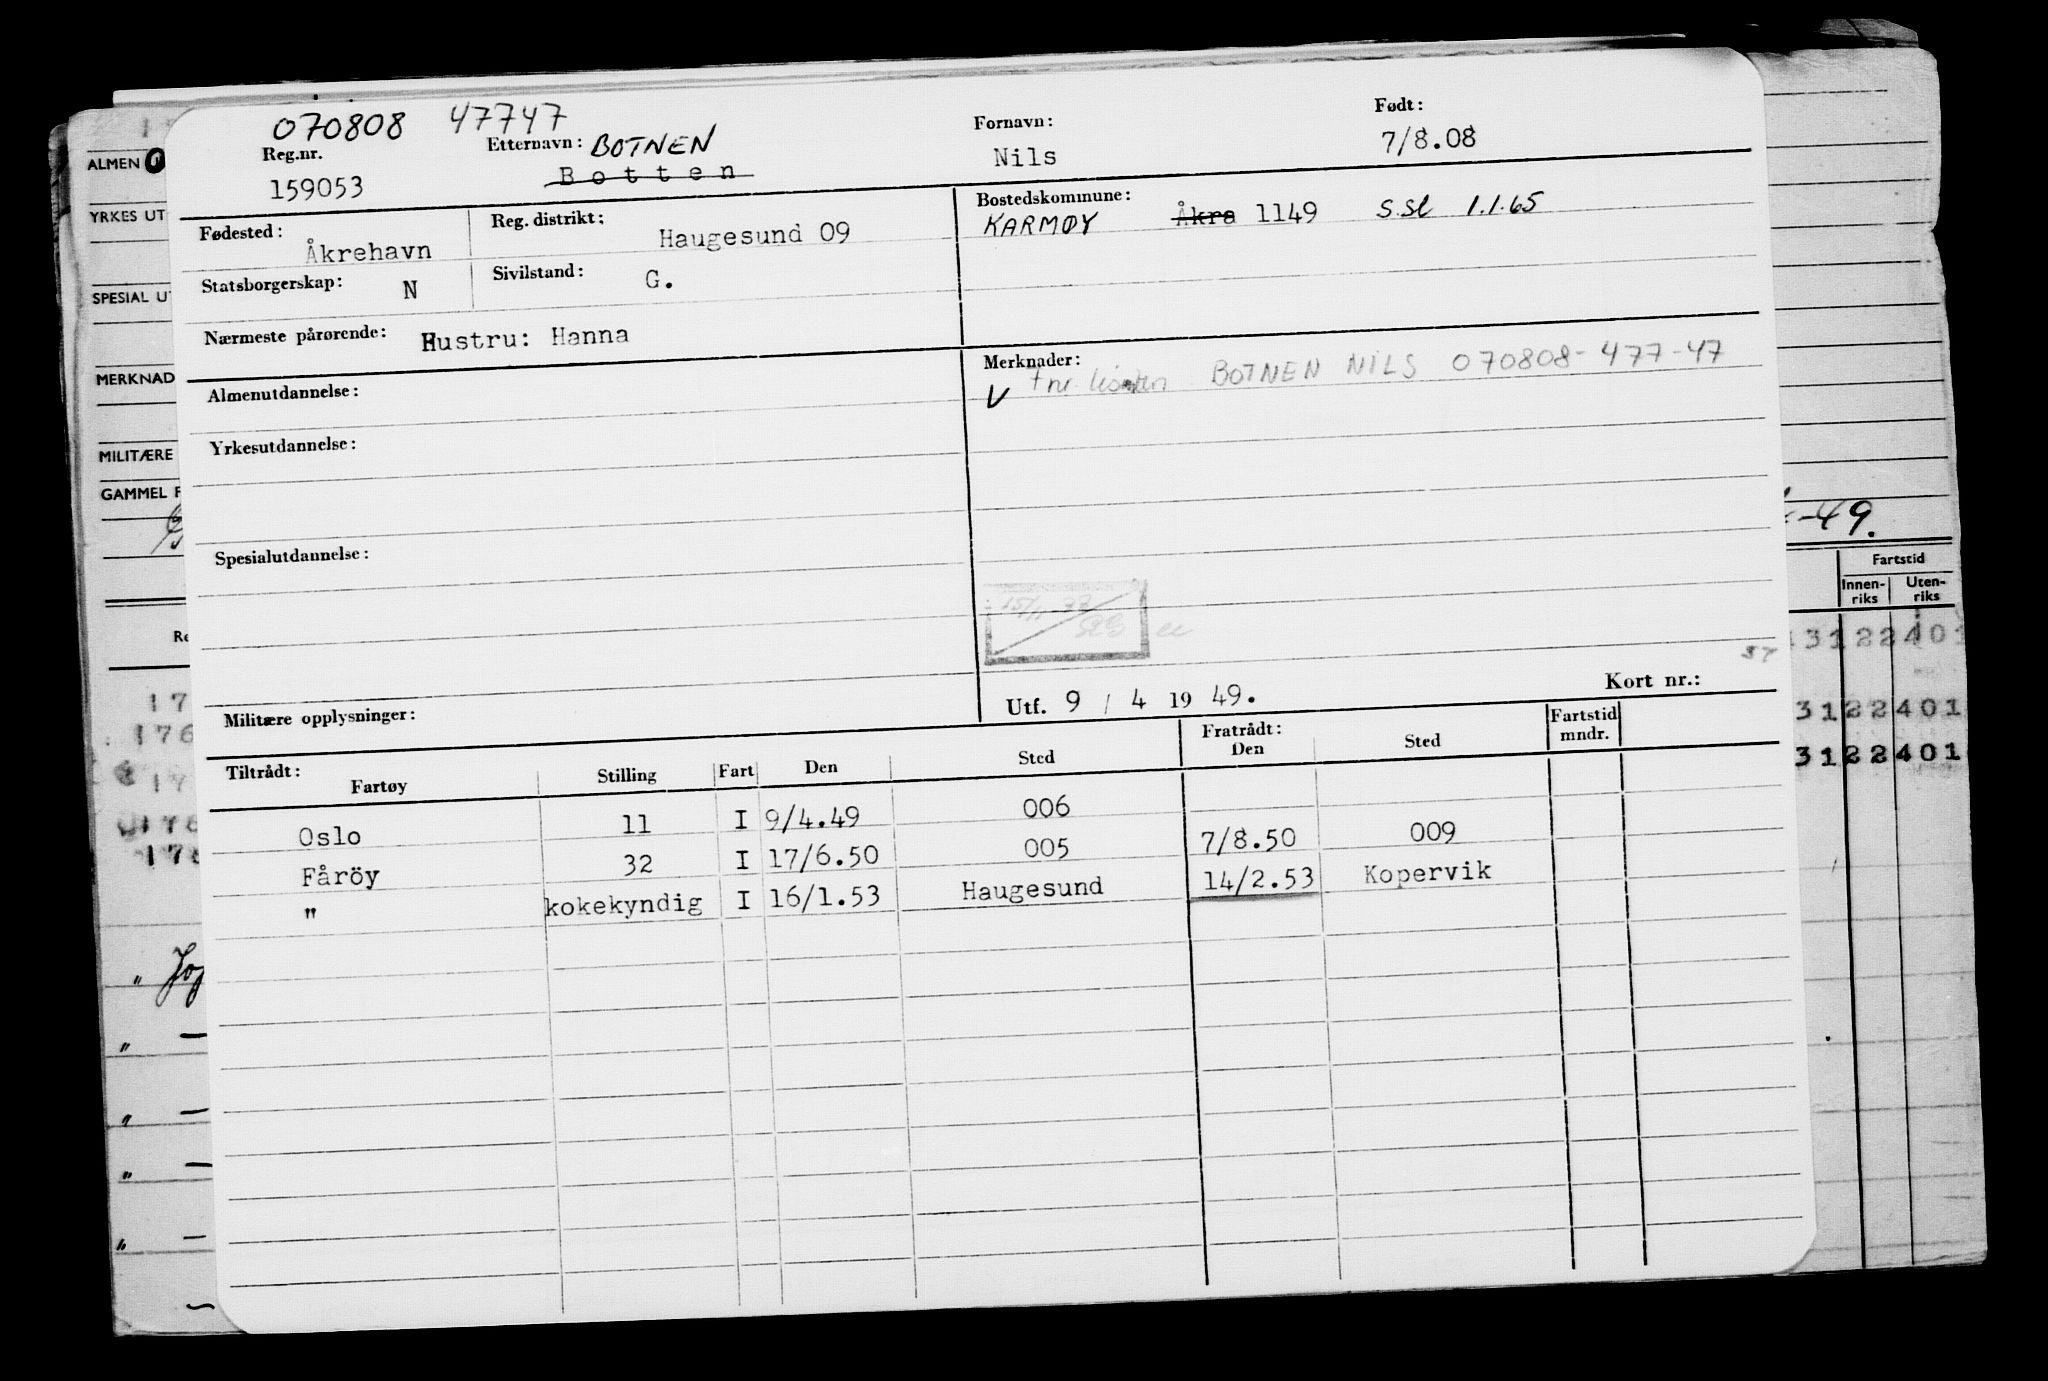 070808 47747
Reg.nr. Etternavn: BOTNEN Fornavn: Født:
159053 Botten Nils 7/8.08
Fødested: Åkrehavn Reg. distrikt: Haugesund 09 Bostedskommune: KARMØY Åkra 1149 S.Sl 1.1.65
Statsborgerskap: N Sivilstand: G.
Nærmeste pårørende: Hustru: Hanna
Almenutdannelse: Merknader: V fnr. BOTNEN NILS 070808-477-47
Yrkesutdannelse:
Spesialutdannelse:
Militære opplysninger: Utf. 9 / 4 19 49. Kort nr.:
Tiltrådt: Fratrådt: Fartstid mndr.
Fartøy Stilling Fart Den Sted Den Sted
Oslo 11 I 9/4.49 006
Fåröy 32 I 17/6.50 005 7/8.50 009
" kokekyndig I 16/1.53 Haugesund 14/2.53 Kopervik
ALMEN
YRKES UT
SPESIAL UT
MERKNAD
MILITÆRE
GAMMEL F
-49.
Fartstid
Innen-riks Uten-riks
3122401
3122401
3122401
Re
17
176
17
176
176